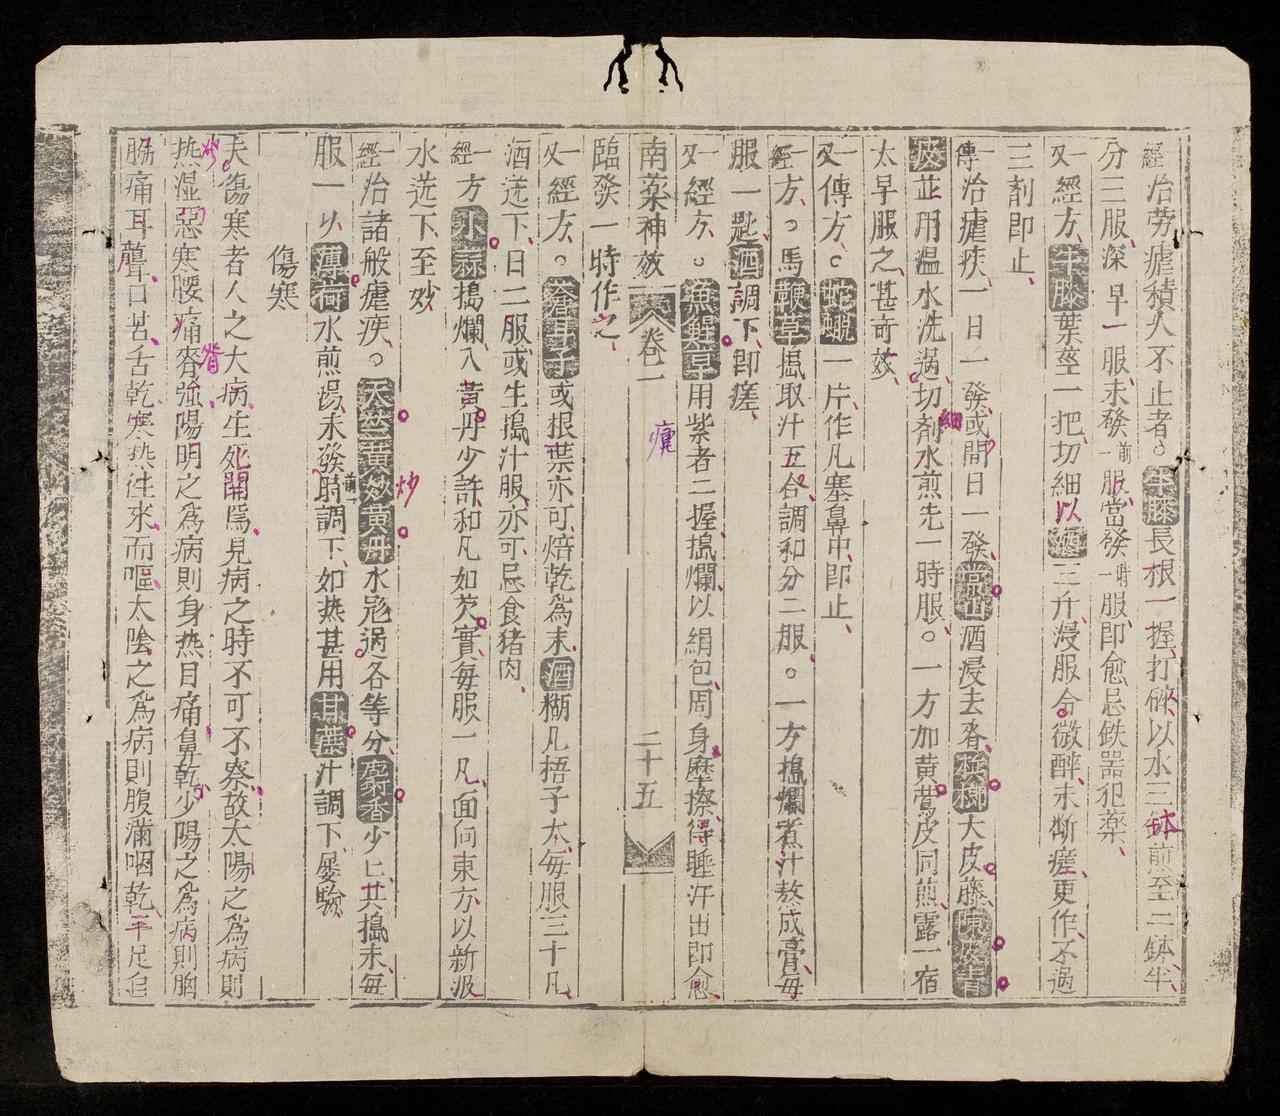 經治勞瘧積久不止者。牛膝長根一握打碎以水三鉢煎至二鉢半
分三服深早一服未發前一服當發一時服即愈忌鉄器犯藥
又一經方牛膝葉莖二把切細以酒三升浸服令微醉未断瘥更作不過
三剤即止
傳治瘧疾一日一發或間日一發常山酒浸去脊梹榔大皮藤陳皮青
皮芷用温水洗過切剤水煎先一時服。一方加黄鶯皮同煎露一宿
太早服之甚奇效
又一傳方。蛇蜕一片作凡塞鼻中即止
經一方。馬鞭草搗取汁五合調和分二服。一方搗爛煮汁熬成膏每
服一匙酒調下即瘥
又一經方。魚鯹草用紫者二握搗爛以絹包周身摩擦得睡汗出即愈
南藥神效 卷一 瘧 二十五
臨發一時作之
又一經方。蒼耳子或根葉亦可焙乾為末酒糊凡梧子大每服三十凡
酒送下日二服或生搗汁服亦可忌食猪肉
經一方水蒜搗爛入黄丹少許和凡如芡實每服一凡面向東方以新汲
水送下至妙
經一治諸般瘧疾。天竺黄炒黄丹水飛過各等分麝香少匕共搗末每
服一以薄荷水煎湯未發時前調下如热甚用甘蔗汁調下屡驗
傷寒
夫傷寒者人之大病生死開焉見病之時不可不察故太陽之為病則
热湿惡寒腰痛脊強陽明之為病則身热目痛鼻乾少陽之為病則胸
脇痛耳聾口苦舌乾寒热往來而嘔太陰之為病則腹滿咽乾手足自